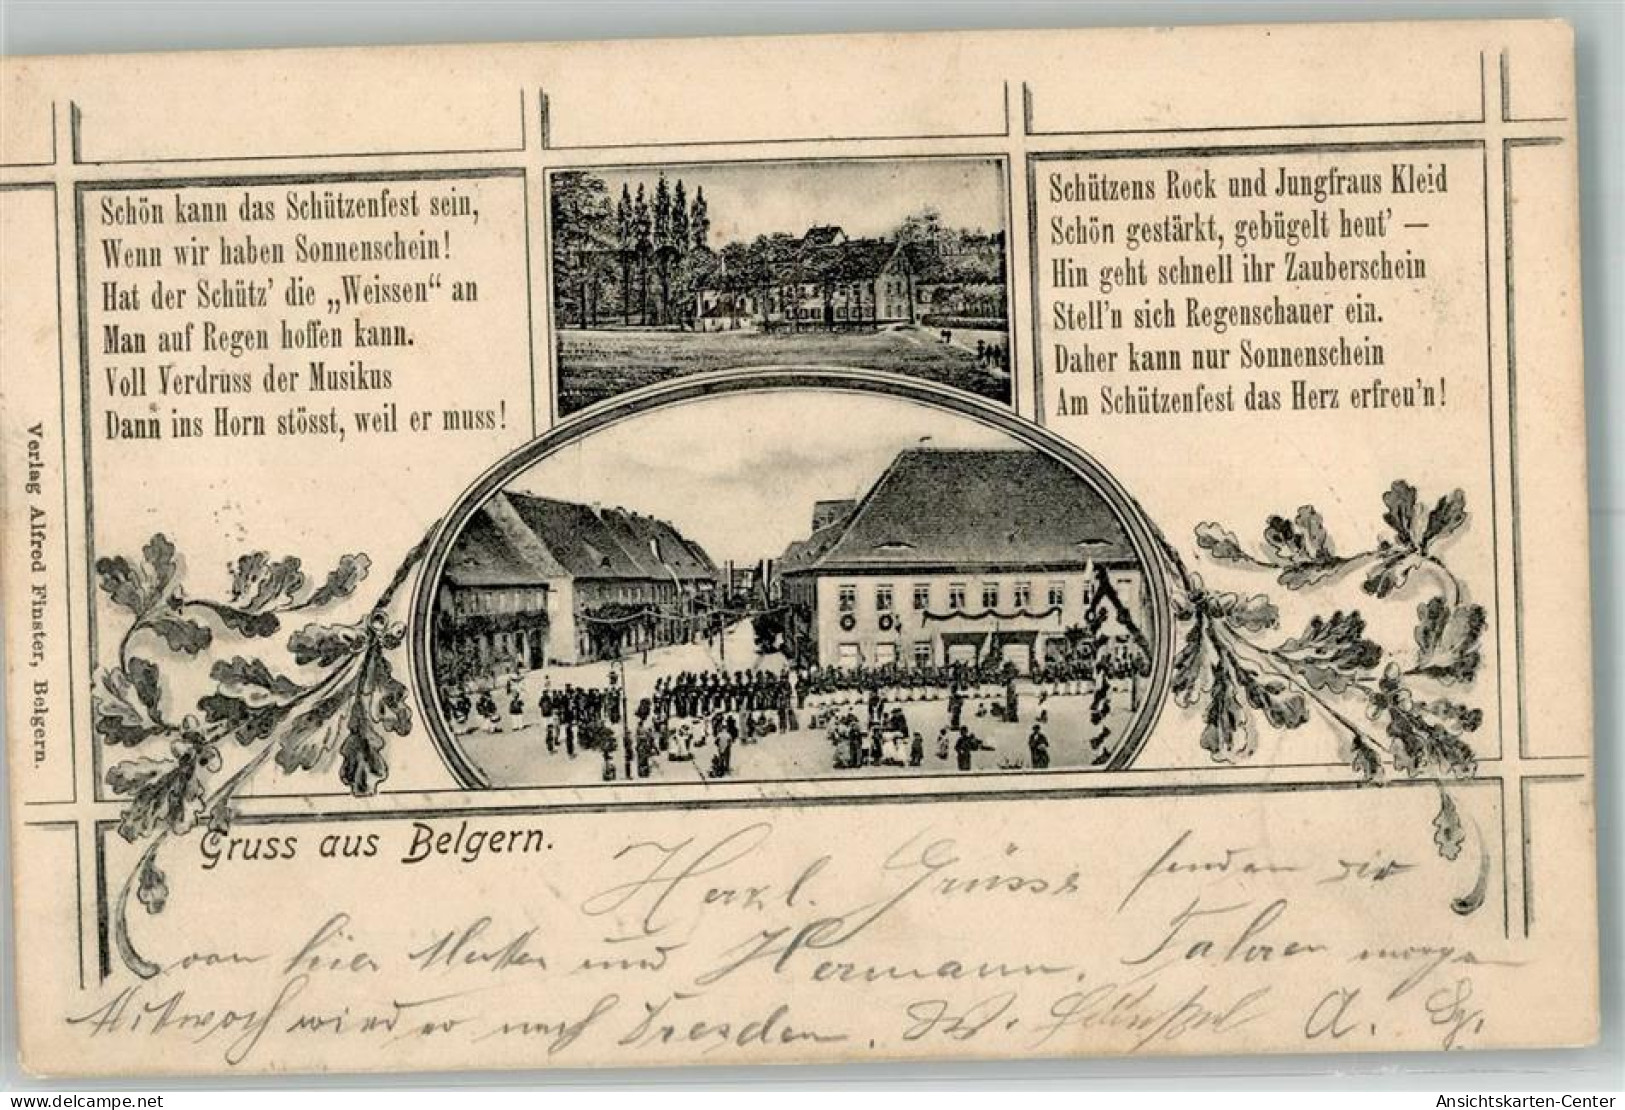 Schön kann das Schützenfest sein,
Wenn wir haben Sonnenschein!
Hat der Schütz' die „Weissen“ an
Man auf Regen hoffen kann.
Voll Verdruss der Musikus
Dann ins Horn stösst, weil er muss!
Schützens Rock und Jungfraus Kleid
Schön gestärkt, gebügelt heut' —
Hin geht schnell ihr Zauberschein
Stell'n sich Regenschauer ein.
Daher kann nur Sonnenschein
Am Schützenfest das Herz erfreu'n!
Verlag Alfred Finster, Belgern.
Gruss aus Belgern.
Herzl. Grüsse senden dir
von hier Mutter und Hermann. Fahren morgen
Mittwoch wieder nach Dresden. W. A.
www.ansichtskarten-center.de
Ansichtskarten-Center